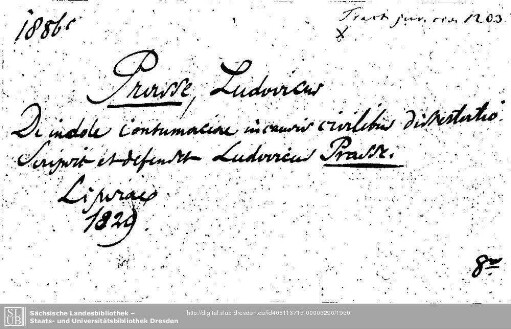 1886 c
Tract. jur. civ. 1203
X
Prasse, Ludovicus
De indole contumaciae in causis civilibus dissertatio
Scripsit et defendet Ludovicus Prasse.
Lipsiae
1829
8vo
SLUB
Sächsische Landesbibliothek –
Staats- und Universitätsbibliothek Dresden